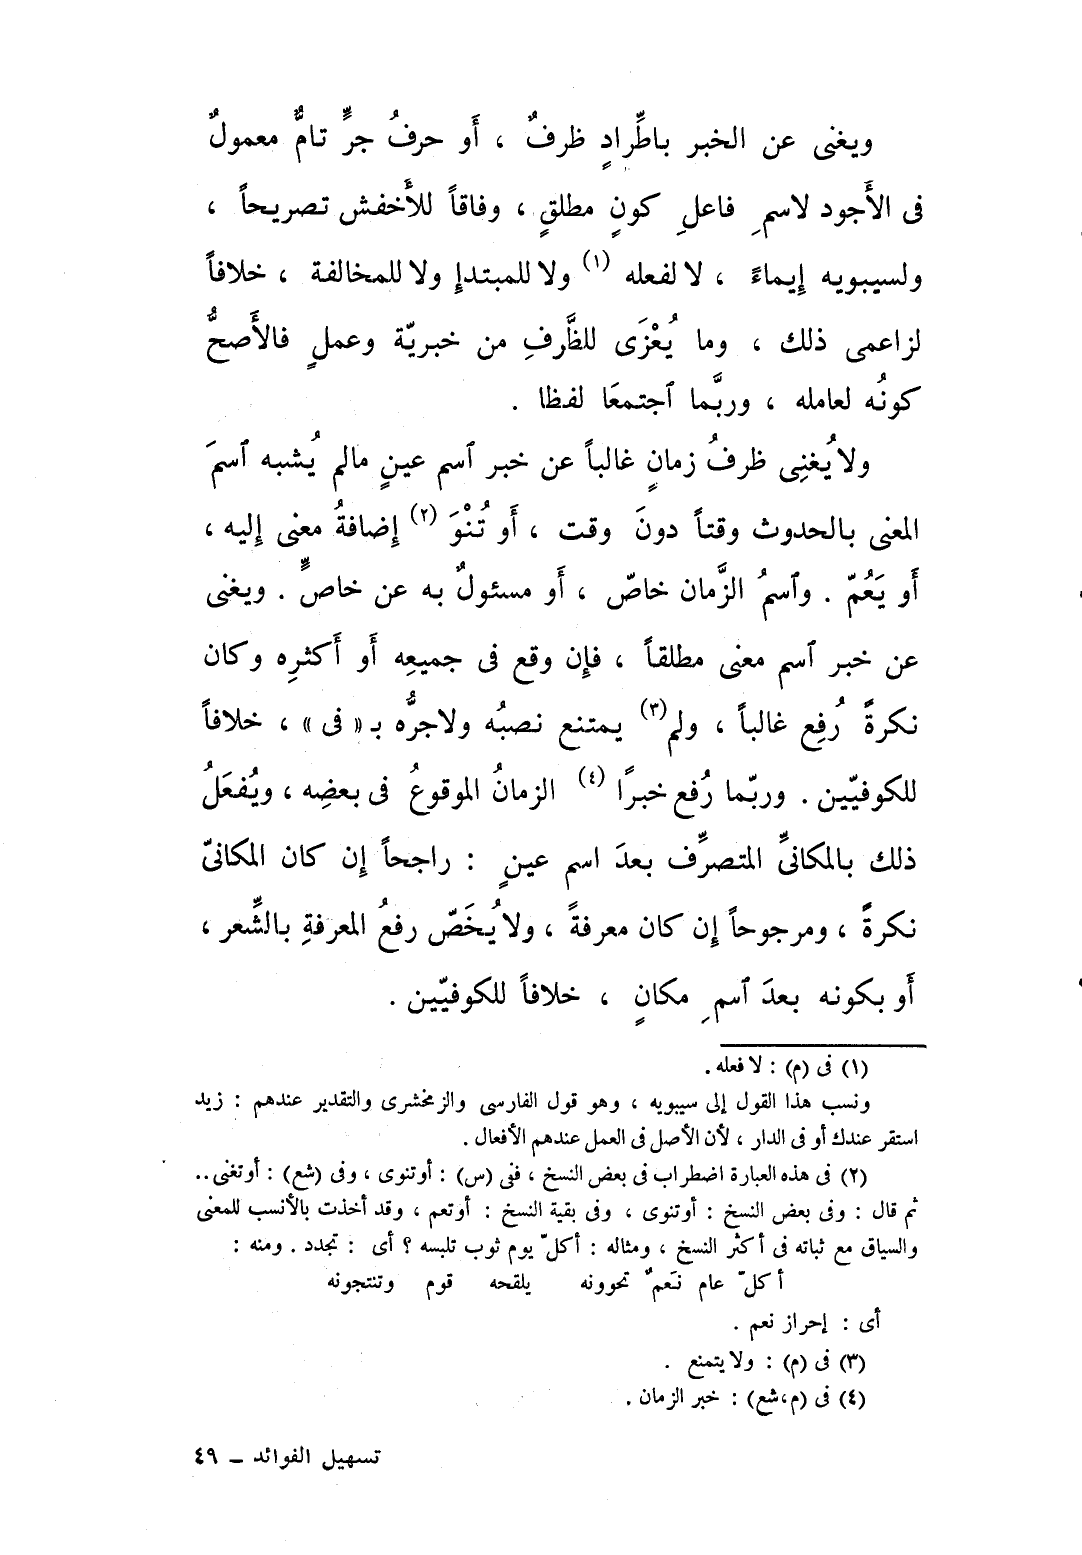 ويغنى عن الخبر باطِّرادٍ ظرفٌ ، أَو حرفُ جرٍّ تامٌّ معمولٌ
فى الأَجود لاسمِ فاعلِ كونٍ مطلقٍ ، وفاقاً للأَخفش تصريحاً ،
ولسيبويه إيماءً ، لا لفعله (١) ولا للمبتدإ ولا للمخالفة ، خلافاً
لزاعمى ذلك ، وما يُعْزَى للظَّرفِ من خبريّة وعملٍ فالأَصحُّ
كونُه لعامله ، وربَّما ٱجتمعَا لفظا .
ولا يُغنِى ظرفُ زمانٍ غالباً عن خبر ٱسم عينٍ مالم يُشبه ٱسمَ
المعنى بالحدوث وقتاً دونَ وقت ، أَو تُنْوَ (٢) إضافةُ معنى إليه ،
أَو يَعُمّ . وٱسمُ الزَّمان خاصّ ، أَو مسئولٌ به عن خاصٍّ . ويغنى
عن خبر ٱسم معنى مطلقاً ، فإن وقع فى جميعِه أَو أَكثرِه وكان
نكرةً رُفِع غالباً ، ولم (٣) يمتنع نصبُه ولاجرُّه بـ « فى » ، خلافاً
للكوفيّين . وربّما رُفع خبرًا (٤) الزمانُ الموقوعُ فى بعضِه ، ويُفعَلُ
ذلك بالمكانىِّ المتصرِّف بعدَ اسم عينٍ : راجحاً إن كان المكانىّ
نكرةً ، ومرجوحاً إن كان معرفةً ، ولا يُخَصّ رفعُ المعرفةِ بالشِّعر ،
أَو بكونه بعدَ ٱسمِ مكانٍ ، خلافاً للكوفيّين .
(١) فى (م) : لا فعله .
ونسب هذا القول إلى سيبويه ، وهو قول الفارسى والزمخشرى والتقدير عندهم : زيد
استقر عندك أو فى الدار ، لأن الأصل فى العمل عندهم الأفعال .
(٢) فى هذه العبارة اضطراب فى بعض النسخ ، ففى (س) : أو تنوى ، وفى (شع) : أو تغنى..
ثم قال : وفى بعض النسخ : أو تنوى ، وفى بقية النسخ : أو تعم ، وقد أخذت بالأنسب للمعنى
والسياق مع ثباته فى أكثر النسخ ، ومثاله : أكلّ يوم ثوب تلبسه ؟ أى : تجدد . ومنه :
أكلّ عام نَعمٌ تحوونه يلقحه قوم وتنتجونه
أى : إحراز نعم .
(٣) فى (م) : ولا يتمنع .
(٤) فى (م،شع) : خبر الزمان .
تسهيل الفوائد – ٤٩